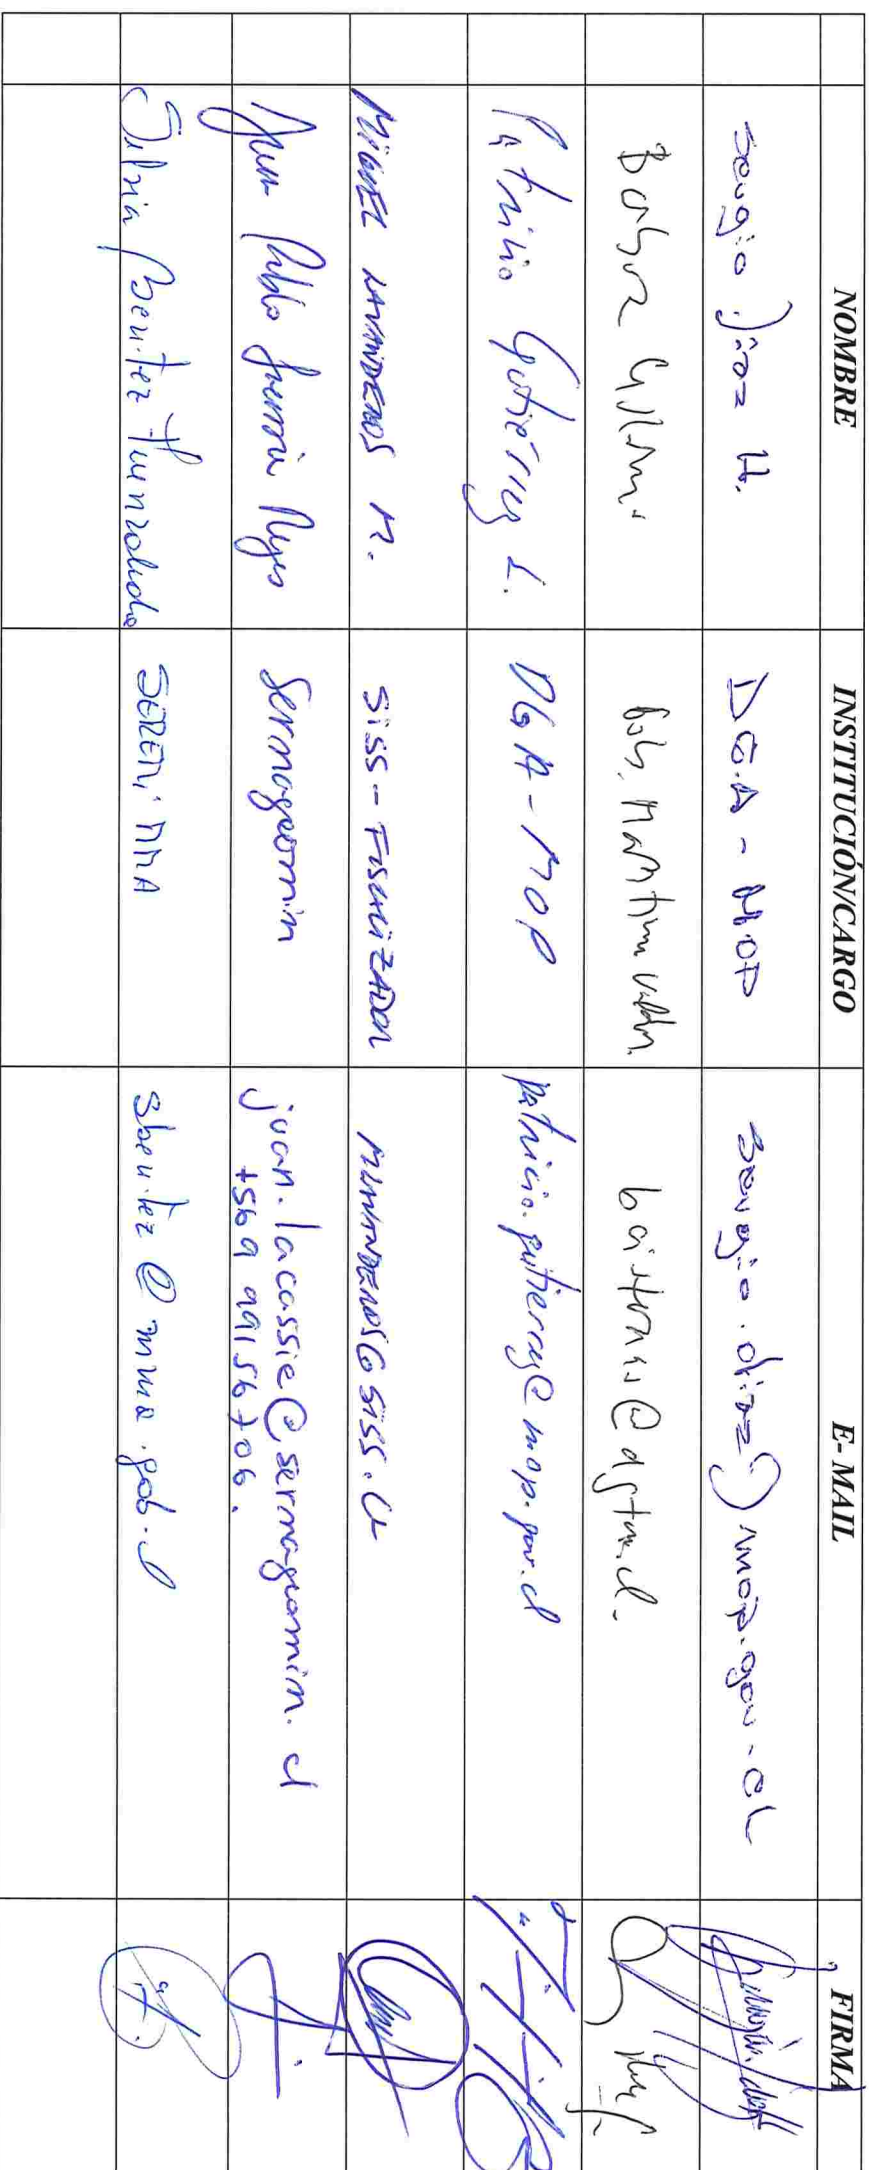 NOMBRE INSTITUCIÓN/CARGO E- MAIL FIRMA
Sergio Díaz H. DGA - MOP sergio.diaz@mop.gov.cl
Gob. Maritima
Patricio Gutiérrez L. DGA - MOP patricio.gutierrez@mop.gov.cl
MIGUEL LAVANDEROS M. SISS - FISCALIZADOR MLAVANDEROS@SISS.CL
Juan Pablo Reyes Sernageomin juan.lacassie@sernageomin.cl
+569 99156706.
Silvia Benitez Fuenzalida SEREMI MMA sbenitez@mma.gob.cl